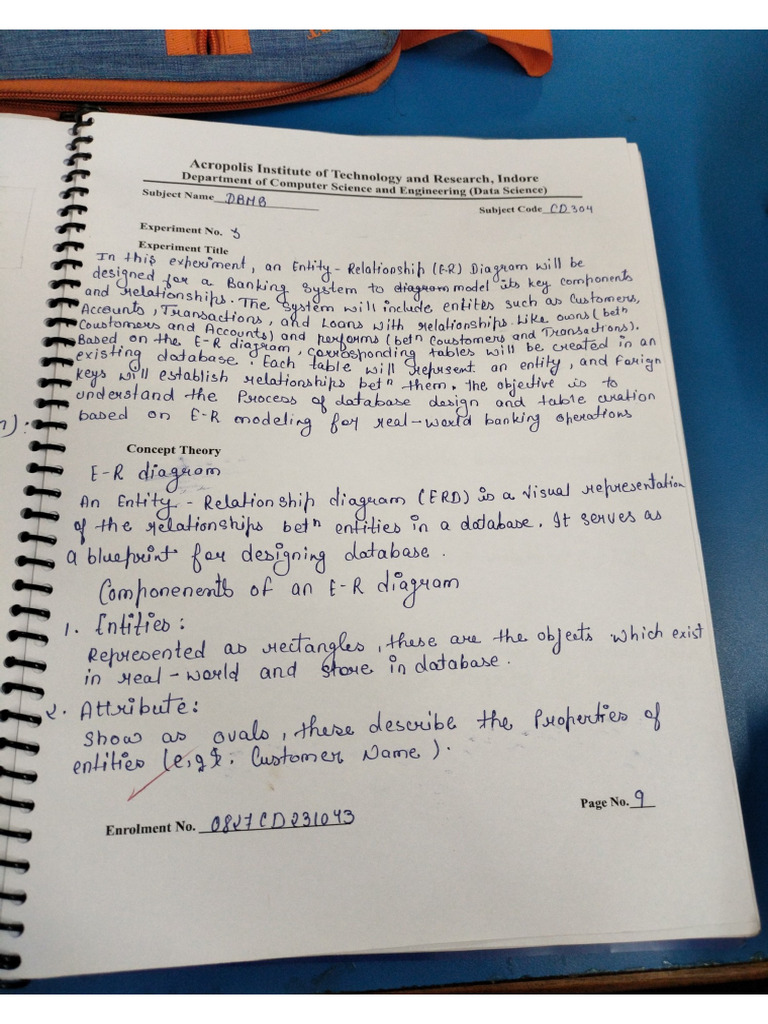 Acropolis Institute of Technology and Research, Indore
Department of Computer Science and Engineering (Data Science)
Subject Name DBMB
Subject Code CD304
Experiment No. 3
Experiment Title
In this experiment, an Entity-Relationship (E-R) Diagram will be
designed for a Banking System to diagram model its key components
and relationships. The system will include entites such as Customers,
Accounts, Transactions, and Loans with relationships. Like owns (betn
Coustomers and Accounts) and performs (betn Coustomers and Transactions).
Based on the E-R diagram, corresponding tables will be created in an
existing database. Each table will represent an entity, and Forign
Keys will establish relationships betn them. the objective is to
understand the Process of database design and table curation
based on E-R modeling for real-world banking operations
Concept Theory
E-R diagram
An Entity-Relationship diagram (ERD) is a visual representation
of the relationships betn entities in a database. It serves as
a blueprint for designing database.
Componenents of an E-R diagram
1. Entities:
Represented as rectangles, these are the objects which exist
in real-world and store in database.
2. Attribute:
Show as ovals, these describe the Properties of
entities (e,g Customer Name).
Page No. 9
Enrolment No. 0827CD231043